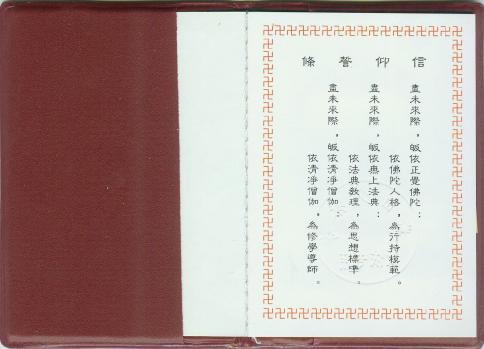 信仰誓條
盡未來際,皈依正覺佛陀:
依佛陀人格,為行持模範。
盡未來際,皈依無上法典:
依法典教理,為思想標準。
盡未來際,皈依清淨僧伽:
依清淨僧伽,為修學導師。